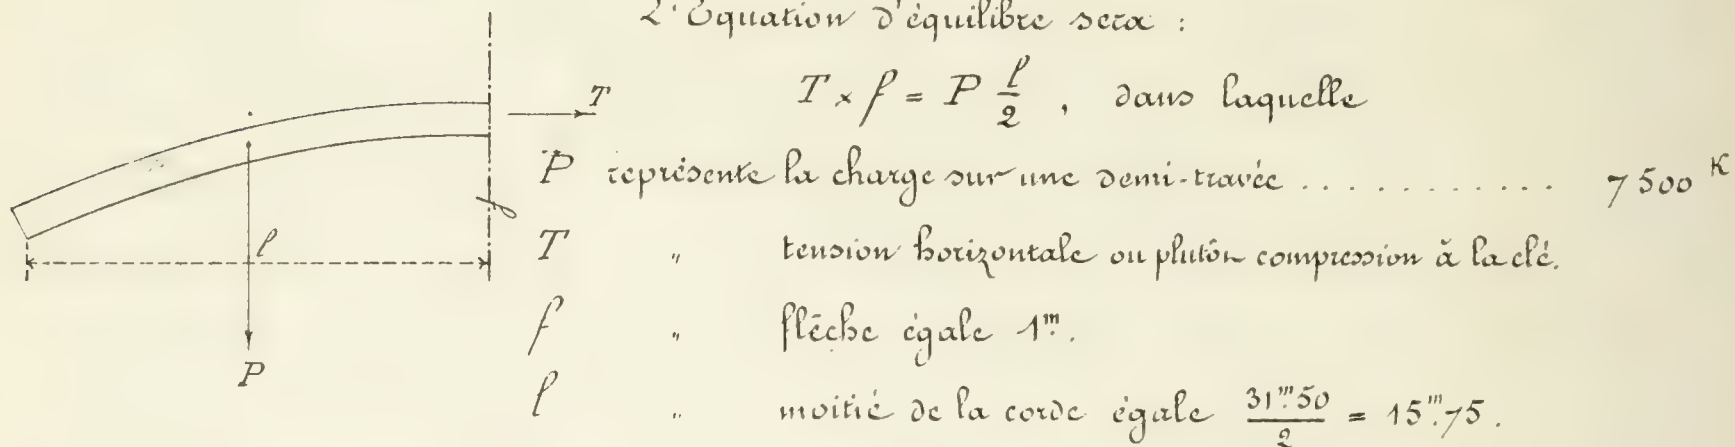 L'Equation d'équilibre sera :
T × f = P l/2 , dans laquelle
T
P représente la charge sur une demi-travée ............ 7500 K
T " tension horizontale ou plutôt compression à la clé.
l
f " flèche égale 1m.
P
l " moitié de la corde égale 31m.50/2 = 15m.75.